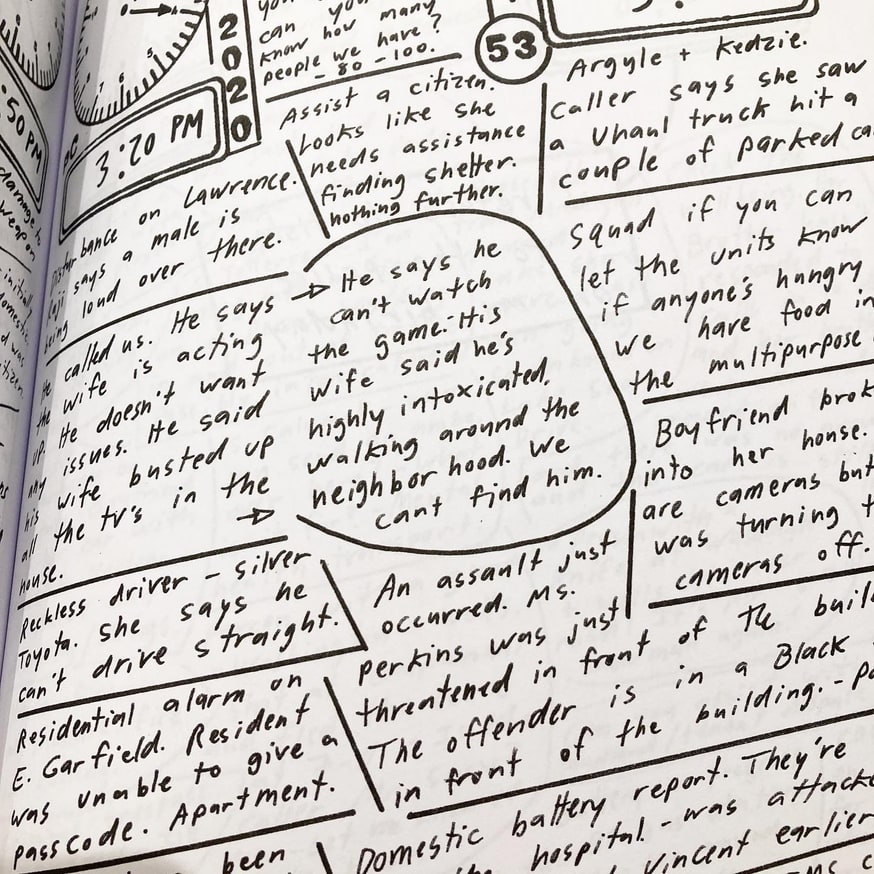 2
0
2
0
3:20 PM
:50 PM
can you
know how many
people we have?
- 80 - 100.
53
Assist a citizen.
Looks like she
needs assistance
finding shelter.
nothing further.
Argyle + Kedzie.
Caller says she saw
a Uhaul truck hit a
couple of parked
on Lawrence.
says a male is
being loud over there.
called us. He says
the wife is acting
up. He doesn't want
any issues. He said
his wife busted up
all the tv's in the
house.
He says he
can't watch
the game. His
wife said he's
highly intoxicated,
walking around the
neighborhood. We
cant find him.
Squad if you can
let the units know
if anyone's hungry
we have food in
the multipurpose
Boyfriend
into her house.
are cameras but
was turning
cameras off.
Reckless driver - silver
Toyota. She says he
can't drive straight.
An assault just
occurred. Ms.
Perkins was just
threatened in front of the
The offender is in a Black
in front of the building. -
Residential alarm on
E. Garfield. Resident
was unable to give a
passcode. Apartment.
Domestic battery report. They're
hospital. - was
Vincent earlier
been